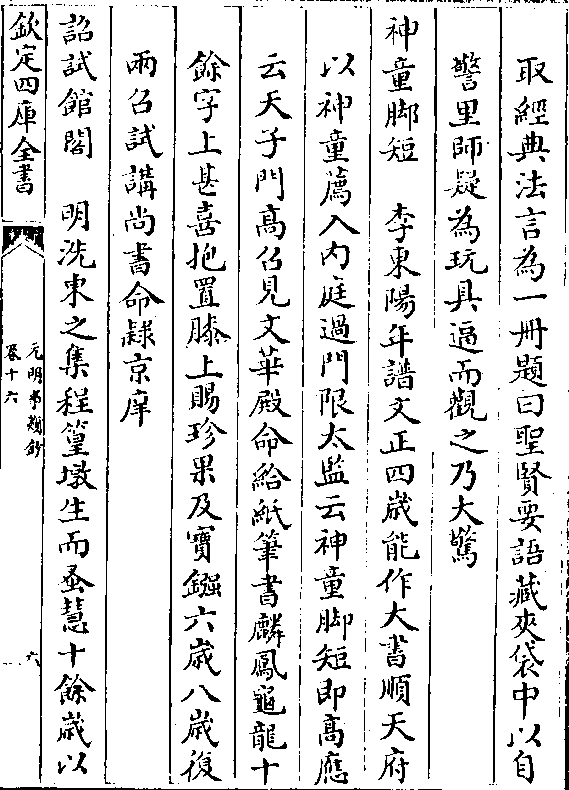 取經典法言為一冊題曰聖賢要語藏夾袋中以自
警里師疑為玩具逼而觀之乃大驚
神童脚短　李東陽年譜文正四歲能作大書順天府
以神童薦入内庭過門限太監云神童脚短即髙應
云天子門髙召見文華殿命給紙筆書麟鳳龜龍十
餘字上甚喜抱置膝上賜珍果及寳鏹六歲八歲復
兩召試講尚書命隸京庠
詔試館閣　明洗東之集程篁墩生而蚤慧十餘歲以
欽定四庫全書
元明事類鈔
卷十六
六